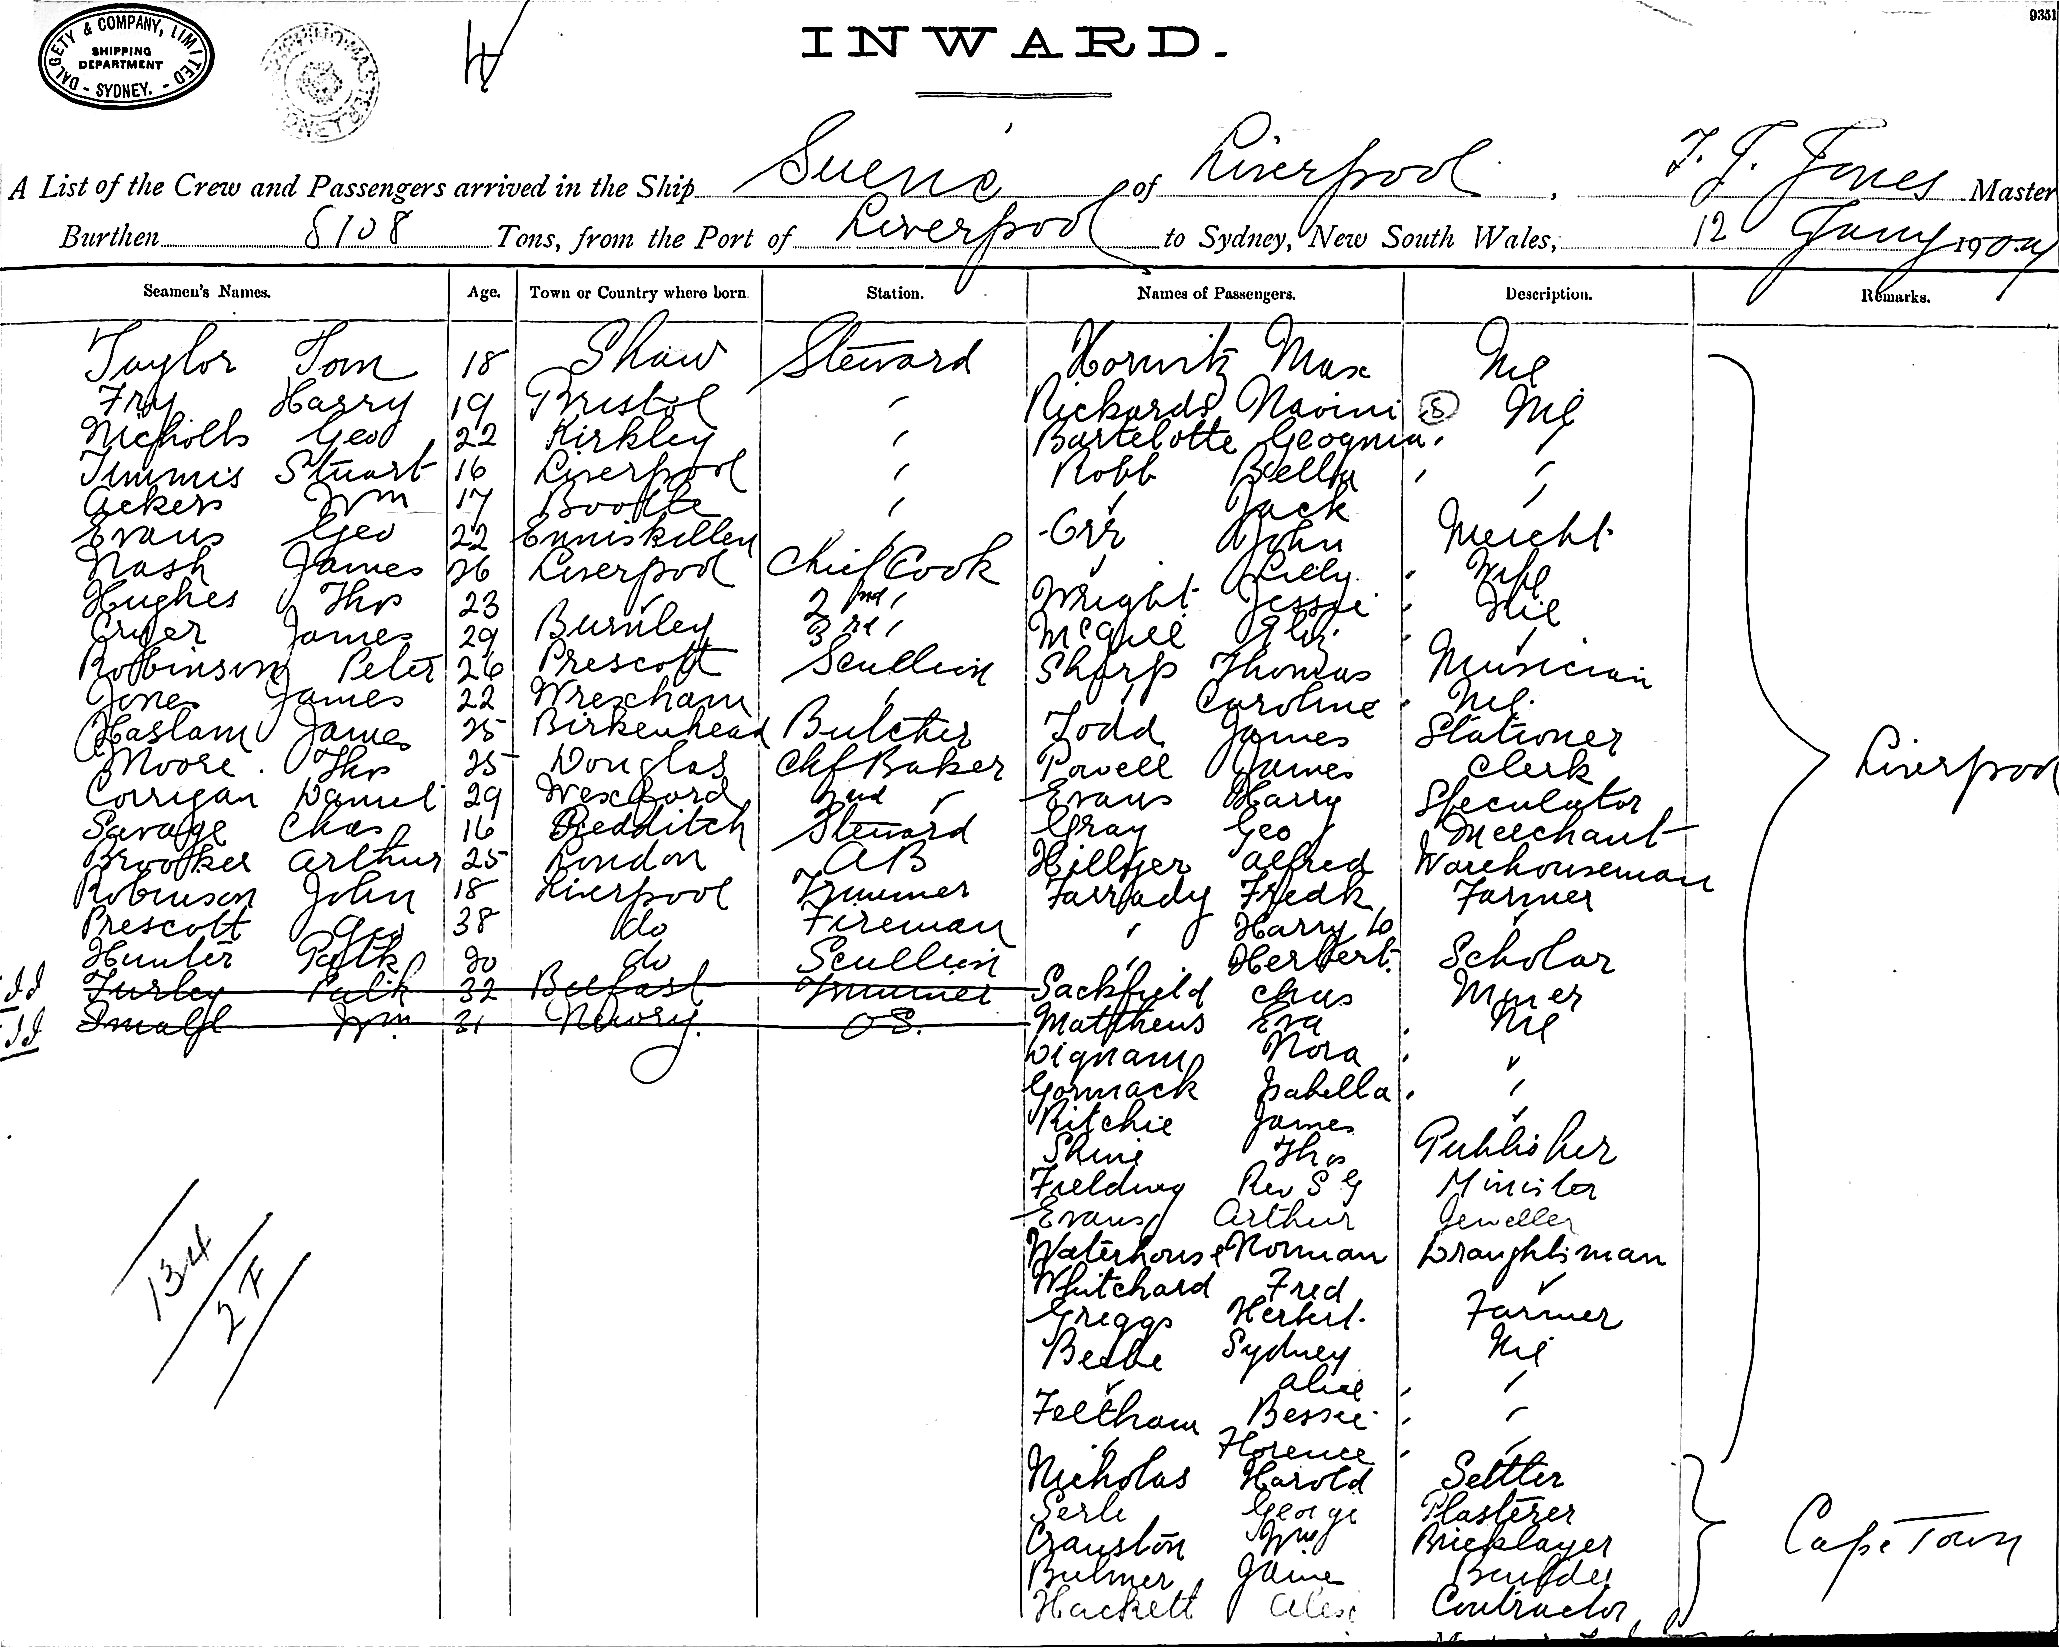 DALGETY & COMPANY, LIMITED
SHIPPING
DEPARTMENT
- SYDNEY. -
9351
INWARD.
A List of the Crew and Passengers arrived in the Ship Suevic of Liverpool, T. J. Jones Master
Burthen 8108 Tons, from the Port of Liverpool to Sydney, New South Wales, 12 Jany 1904
Seamen's Names. Age. Town or Country where born Station. Names of Passengers. Description. Remarks.
Taylor Tom 18 Shaw Steward Horwitz Max Nil
Fry Harry 19 Bristol " Rickards Navini S Nil
Nicholls Geo 22 Kirkley " Bartelotte "
Timmis Stuart 16 Liverpool " Robb Bella "
Ackers Wm 17 Bootle " " Jack "
Evans Geo 22 Enniskillen " Orr John Mercht
Nash James 26 Liverpool Chief Cook " Lilly Wife
Hughes Thos 23 " 2nd " Wright Jessie Nil
Cryer James 29 Burnley 3rd " McGhee Eliz "
Robbinson Peter 26 Prescott Scullion Sharp Thomas Musician
Jones James 22 Wrexham " " Caroline Nil
Haslam James 25 Birkenhead Butcher Todd James Stationer
Moore Thos 25 Douglas Chf Baker Powell James Clerk
Corrigan Daniel 29 Wexford 2nd " Evans Harry Speculator
Savage Chas 16 Redditch Steward Gray Geo Merchant
Brooker Arthur 25 London AB Hillyer Alfred Warehouseman
Robinson John 18 Liverpool Trimmer Farrady Fredk Farmer
Prescott Geo 38 do Fireman " Harry "
Hunter Patk 20 do Scullion " Herbert Scholar
Turley Patk 32 Belfast Trimmer Sackfield Chas Miner
Small Wm 21 Newry OS. Matthews Eva Nil
Dignam Nora "
Gormack Isabella "
Ritchie James "
Shine Thos Publisher
Fielding Rev S G Minister
Evans Arthur Jeweller
Waterhouse Norman Draughtsman
Whitchard Fred "
Greggs Herbert Farmer
Beebe Sydney Nil
" Alice "
Feltham Bessie "
" Florence "
Nicholas Harold Settler
Serle George Plasterer
Cranston Wm Bricklayer
Bulmer James Builder
Hackett Alex Contractor
Liverpool
Cape Town
134
2 F